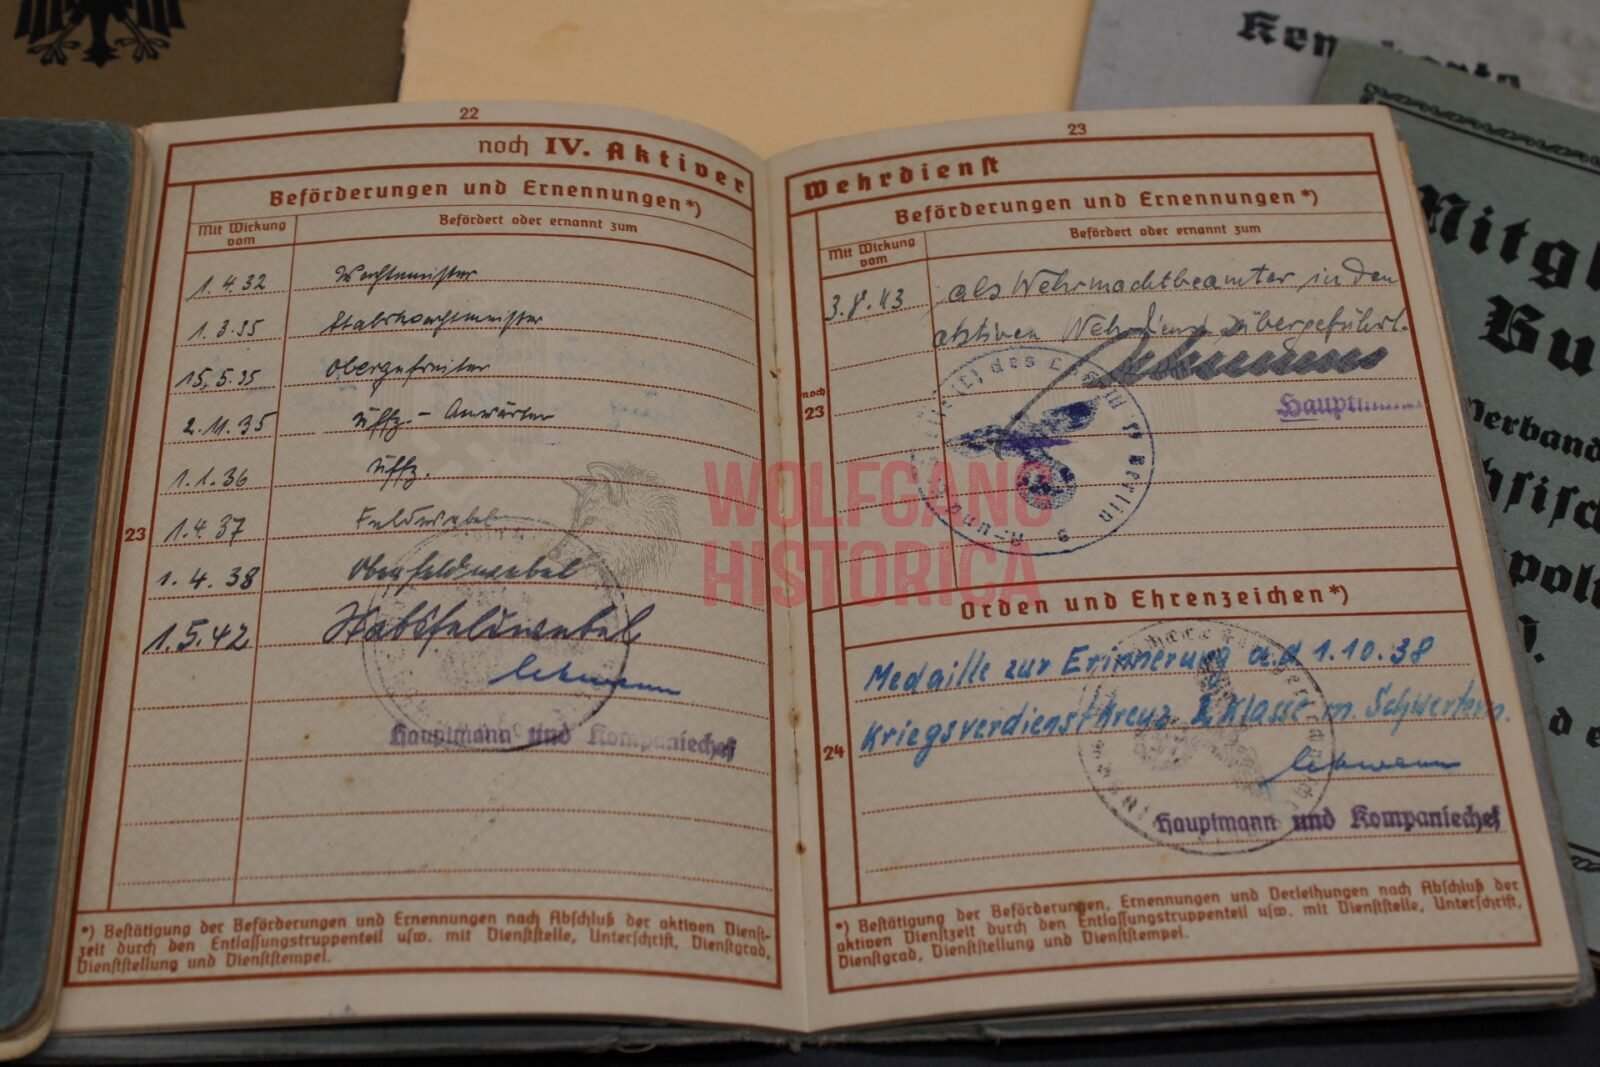 Kennkarte
22
noch IV. Aktiver
Beförderungen und Ernennungen*)
Mit Wirkung vom
Befördert oder ernannt zum
1.4.32 Wachtmeister
1.3.35 Stabswachtmeister
15.5.35 Obergefreiter
2.11.35 Uffz.-Anwärter
1.1.36 Uffz.
23
1.4.37 Feldwebel
1.4.38 Oberfeldwebel
1.5.42 Stabsfeldwebel
Lehmann
Hauptmann und Kompaniechef
*) Bestätigung der Beförderungen und Ernennungen nach Abschluß der aktiven Dienst-
zeit durch den Entlassungstruppenteil usw. mit Dienststelle, Unterschrift, Dienstgrad,
Dienststellung und Dienststempel.
23
Wehrdienst
Beförderungen und Ernennungen*)
Mit Wirkung vom
Befördert oder ernannt zum
3.8.43 als Wehrmachtbeamter in den
aktiven Wehrdienst übergeführt.
noch
23
Hauptmann
Berlin
WOLFGANG
HISTORICA
Orden und Ehrenzeichen*)
Medaille zur Erinnerung a.d 1.10.38
Kriegsverdienstkreuz 2. Klasse m. Schwertern.
24
Lehmann
Hauptmann und Kompaniechef
*) Bestätigung der Beförderungen, Ernennungen und Verleihungen nach Abschluß der
aktiven Dienstzeit durch den Entlassungstruppenteil usw. mit Dienststelle, Unterschrift,
Dienstgrad, Dienststellung und Dienststempel.